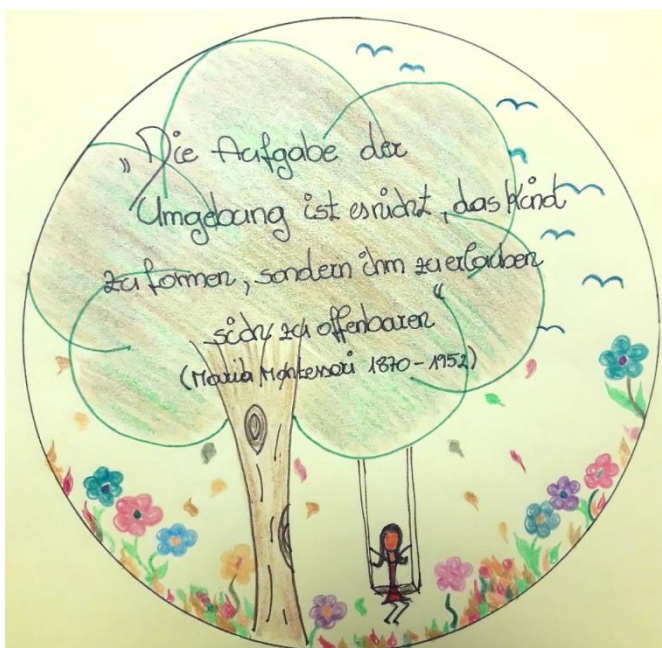 „Die Aufgabe der
Umgebung ist es nicht, das Kind
zu formen, sondern ihm zu erlauben
sich zu offenbaren“
(Maria Montessori 1870-1952)